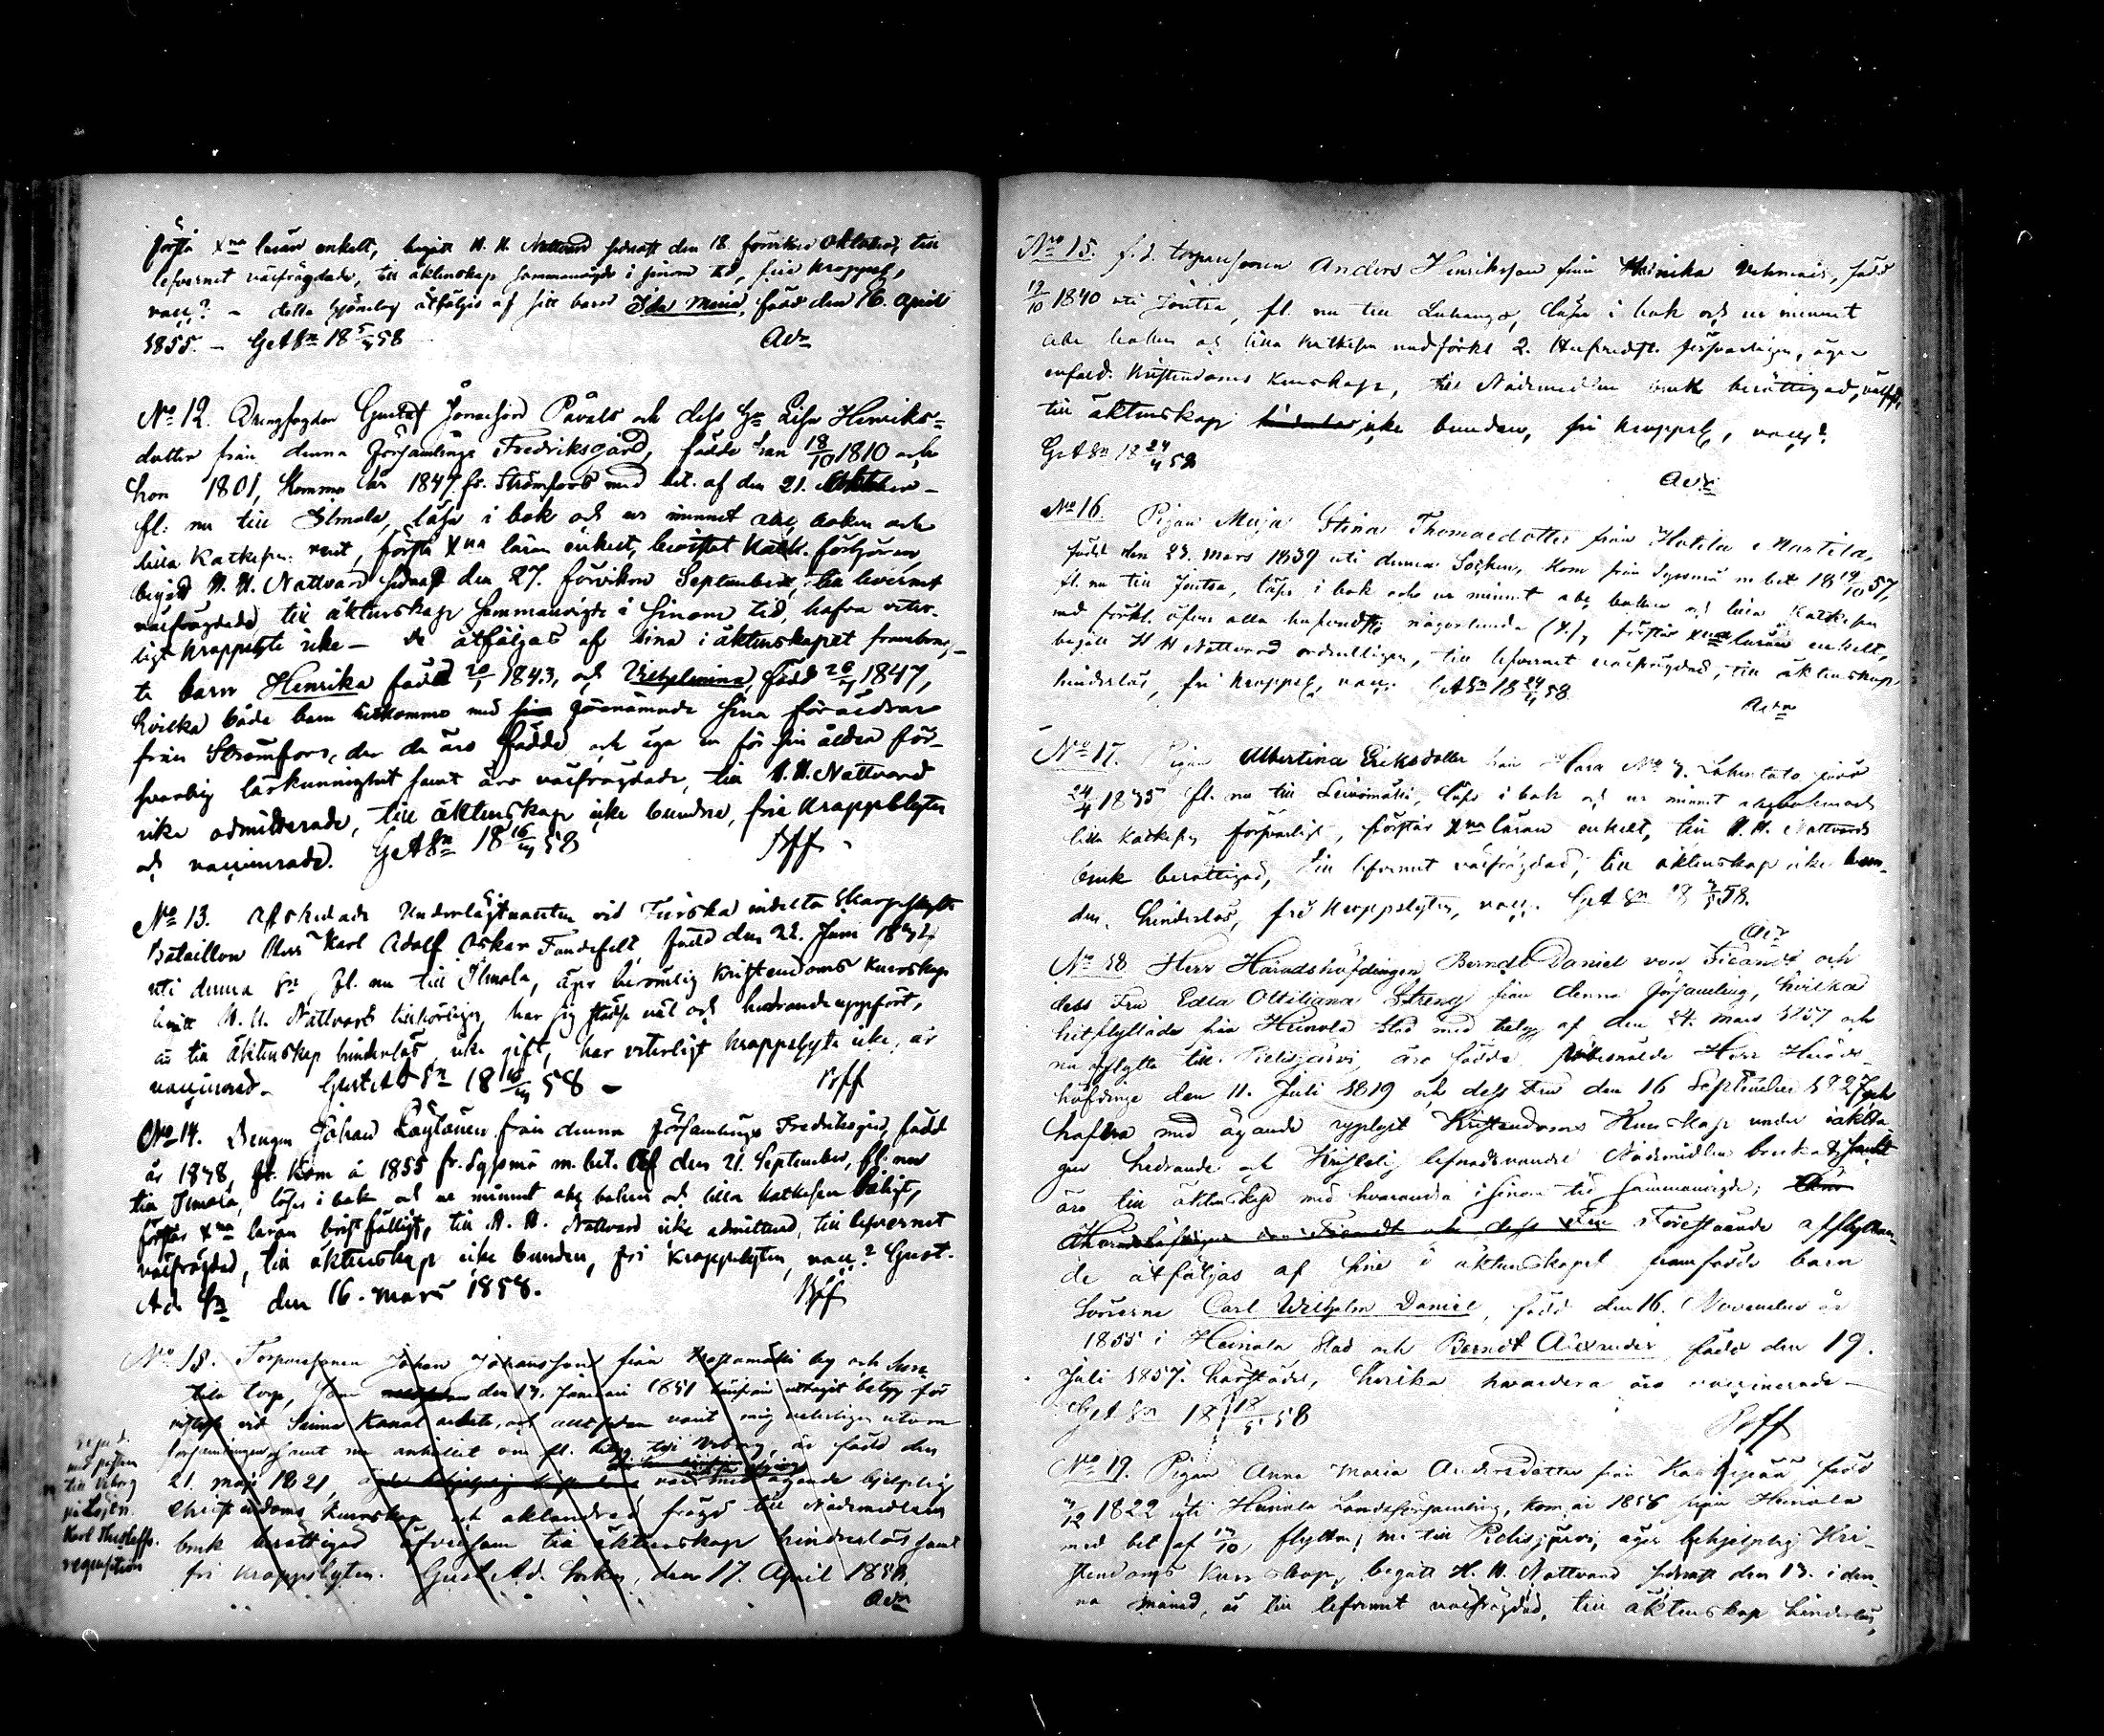 förstå Xna läran enkelt, begått H. H. Nattvard sednast den 18. förviken Oktober, till
lefvernet välfrägdade, till äktenskap sammanvigde i sinom tid, frie kroppsl,
vacc? – detta hjonelag åtföljes af sitt barn Ida Maria, född den 16. April
1855. – GetASn 18 5/4 58
Adn
No 12. Drengfogden Gustaf Jonasson Påvals och dess Hu Lisa Henriks=
dotter från denna Församlings Fredriksgård, födde han 18/10 1810 och
hon 1801, komne år 1847 fr. Strömfors med bet. af den 21. Oktober –
fl. nu till Ilmola, läsa i bok och ur minnet abc boken och
lilla Katkesen, förstå Xna läran enkelt, bevistat Katk. förhören,
begått H. H. Nattvard sednast den 27. förvikne September, till lefvernet
välfrägdade till äktenskap sammanvigde i sinom tid, hafva veter-
ligt kroppslyte icke – De åtföljas af sina i äktenskapet frambrag-
te barn Henrika född 20/1 1843, och Vilhelmina, född 1847,
hvilka både barn hitkommo med förenämnde sina föräldrar
från Strömfors, der de äro födde, och ega en för sin ålder för-
svarlig läskunnighet samt äro välfrägdade, till H. H. Nattvard
icke admitterade, till äktenskap icke bundne, frie kroppslyten
och vaccinerade. GetASn 18 16/3 58
Bff
No 13. Afskedade Underlöjtnanten vid Turska indelta Skarpskytte
Bataillon Herr Karl Adolf Oskar Tandefelt, född den 22. Juni
uti denna Sn, fl. nu till Ilmola, äger berömlig Kristendoms kunskap
begått H. H. Nattvard tillhörigen, har sig städse väl och hedrande uppfört,
är till äktenskap hinderlös, icke gift, har veterligt kroppslyte icke, är
vaccinerad. Gust Ad Sn 18 58 –
Bff
No 14. Drengen Johan Löytänen från denna Församlings Fredriksgård, född
år 1838, kom år 1855 fr. Sysmä m. bet. af den 21. September, fl. nu
till Ilmola, läser i bok och ur minnet abc boken och lilla katkesen
förstår Xna läran bristfälligt, till H. H. Nattvard icke admitterad, till lefvernet
välfrägdad, till äktenskap icke bunden, fri kroppslyten, vacc? Gust.
Ad. Sn den 16. Mars 1858.
Bff
No 15. Torparesonen Johan Johansson från by och
torp, som den 17. Januari 1851 härifrån uttagit betyg för
vid Saima Kanal arbete, och allt sedan varit mig veterligen utom
församlingen samt nu anhållit om fl. betyg till Viborg, är född den
21. maji 1821, med ägande hjelplig
Christendoms kunskap och oklandrad frägd till Nådemedlens
bruk berättigad äfvensom till äktenskap hinderlös samt
fri kroppslyten. Gust. Ad. Socken, den 17. April 1858.
Adn
med posten
till Viborg
Karl
requisition
Nro 15. f. d. torparesonen Anders Henriksson från Heinika Vehmais, född
12/10 1840 uti Joutsa, fl. nu till Luhango, läser i bok och ur minnet
abc boken och lilla katkesen med förkl. 2. Hufvudst. försvarligen, äger
enfald. Kristendoms kunskap, till Nådemedlens bruk berättigad, välfr.
till äktenskap icke bunden, fri kroppsl, vacc?
GetASn 18 24/4 58
Adn
No 16. Pigan Maja Stina Thomasdotter från Hotila Mantila,
född den 23. Mars 1839 uti denna Socken, kom från Sysmä m. bet 18 19/10 57,
fl. nu till Joutsa, läser i bok och ur minnet abc boken och lilla Katkesen
med förkl. öfver alla hufvudst. någorlunda, förstår Xna läran enkelt,
begått H H Nattvard ordentligen, till lefvernet välfrägdad, till äktenskap
hinderlös, fri kroppsl, vacc. GetASn 18 24/4 58
Adn
No 17. Pigan Albertina Eriksdotter från No 3. född
24/4 1835 fl. nu till Leivomäki, läser i bok och ur minnet abc boken och
lilla katkesen försvarligt, förstår Xna läran enkelt, till H. H. Nattvards
bruk berättigad, till lefvernet välfrägdad, till äktenskap icke bun-
den, hinderlös, fri kroppslyten, vacc. GetASn 18 58.
Adn
No 18 Herr Häradshöfdingen Berndt Daniel von Ficandt och
dess Fru Edla Ottiliana Streng från denna församling, hvilka
hitflyttade från Heinola Stad med betyg af den 24. Mars 1857 och
nu afflytta till Pielisjärvi, äro födde, Herr Härads-
höfdinge den 11. Juli 1819 och dess Fru den 16 September 1827, och
hafva med ägande upplyst Kristendoms Kunskap under iaktta-
gen hedrande och Kristelig lefnadsvandel Nådemidlen brukat, samt
äro till äktenskap med hvarandra i sinom tid sammanvigde;
Häradshöfdingen von Ficandt och dess Fru Förestående afflyttan-
de åtföljas af sine i äktenskapet framfödde barn
Sönerne Carl Wilhelm Daniel, född den 16. November år
1855 i Heinola Stad och Berndt Alexander, född den 19.
Juli 1857. härstädes, hvilka hvardera äro vaccinerade –
GetASn 18 18/5 58
Bff
No 19. Pigan Anna Maria Andersdotter från född
1822 uti Heinola Landsförsamling, kom år 1856 från Heinola
med bet af, flyttar nu till Pielisjärvi, äger behjelplig Kri-
stendoms kunskap, begått H. H. Nattvard sednast den 13. i den-
na månad, är till lefvernet välfrägdad, till äktenskap hinderlös,